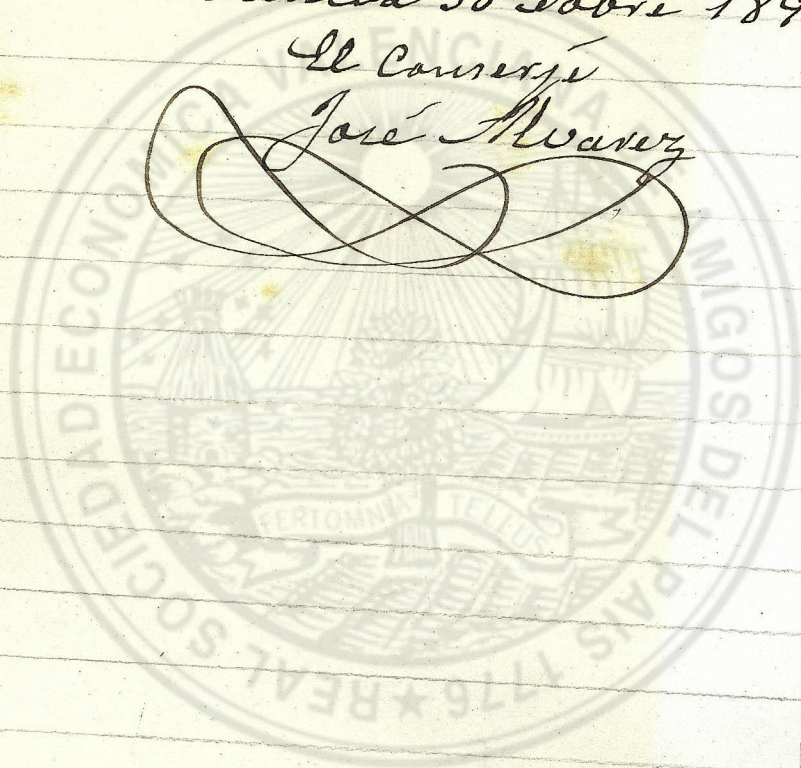 30 189
El Conserje
José Alvarez
REAL SOCIEDAD ECONOMICA VALENCIANA AMIGOS DEL PAIS 1776
FERTOMNIA TELLUS